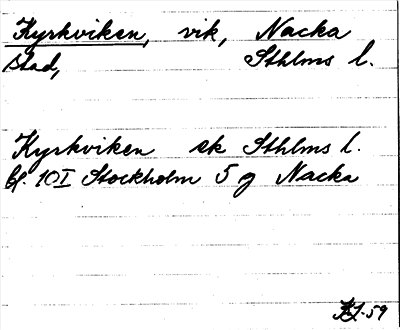 Kyrkviken, vik, Nacka
stad, Sthlms l.
Kyrkviken ek Sthlms l.
bl. 10 I Stockholm 5 g Nacka
-59